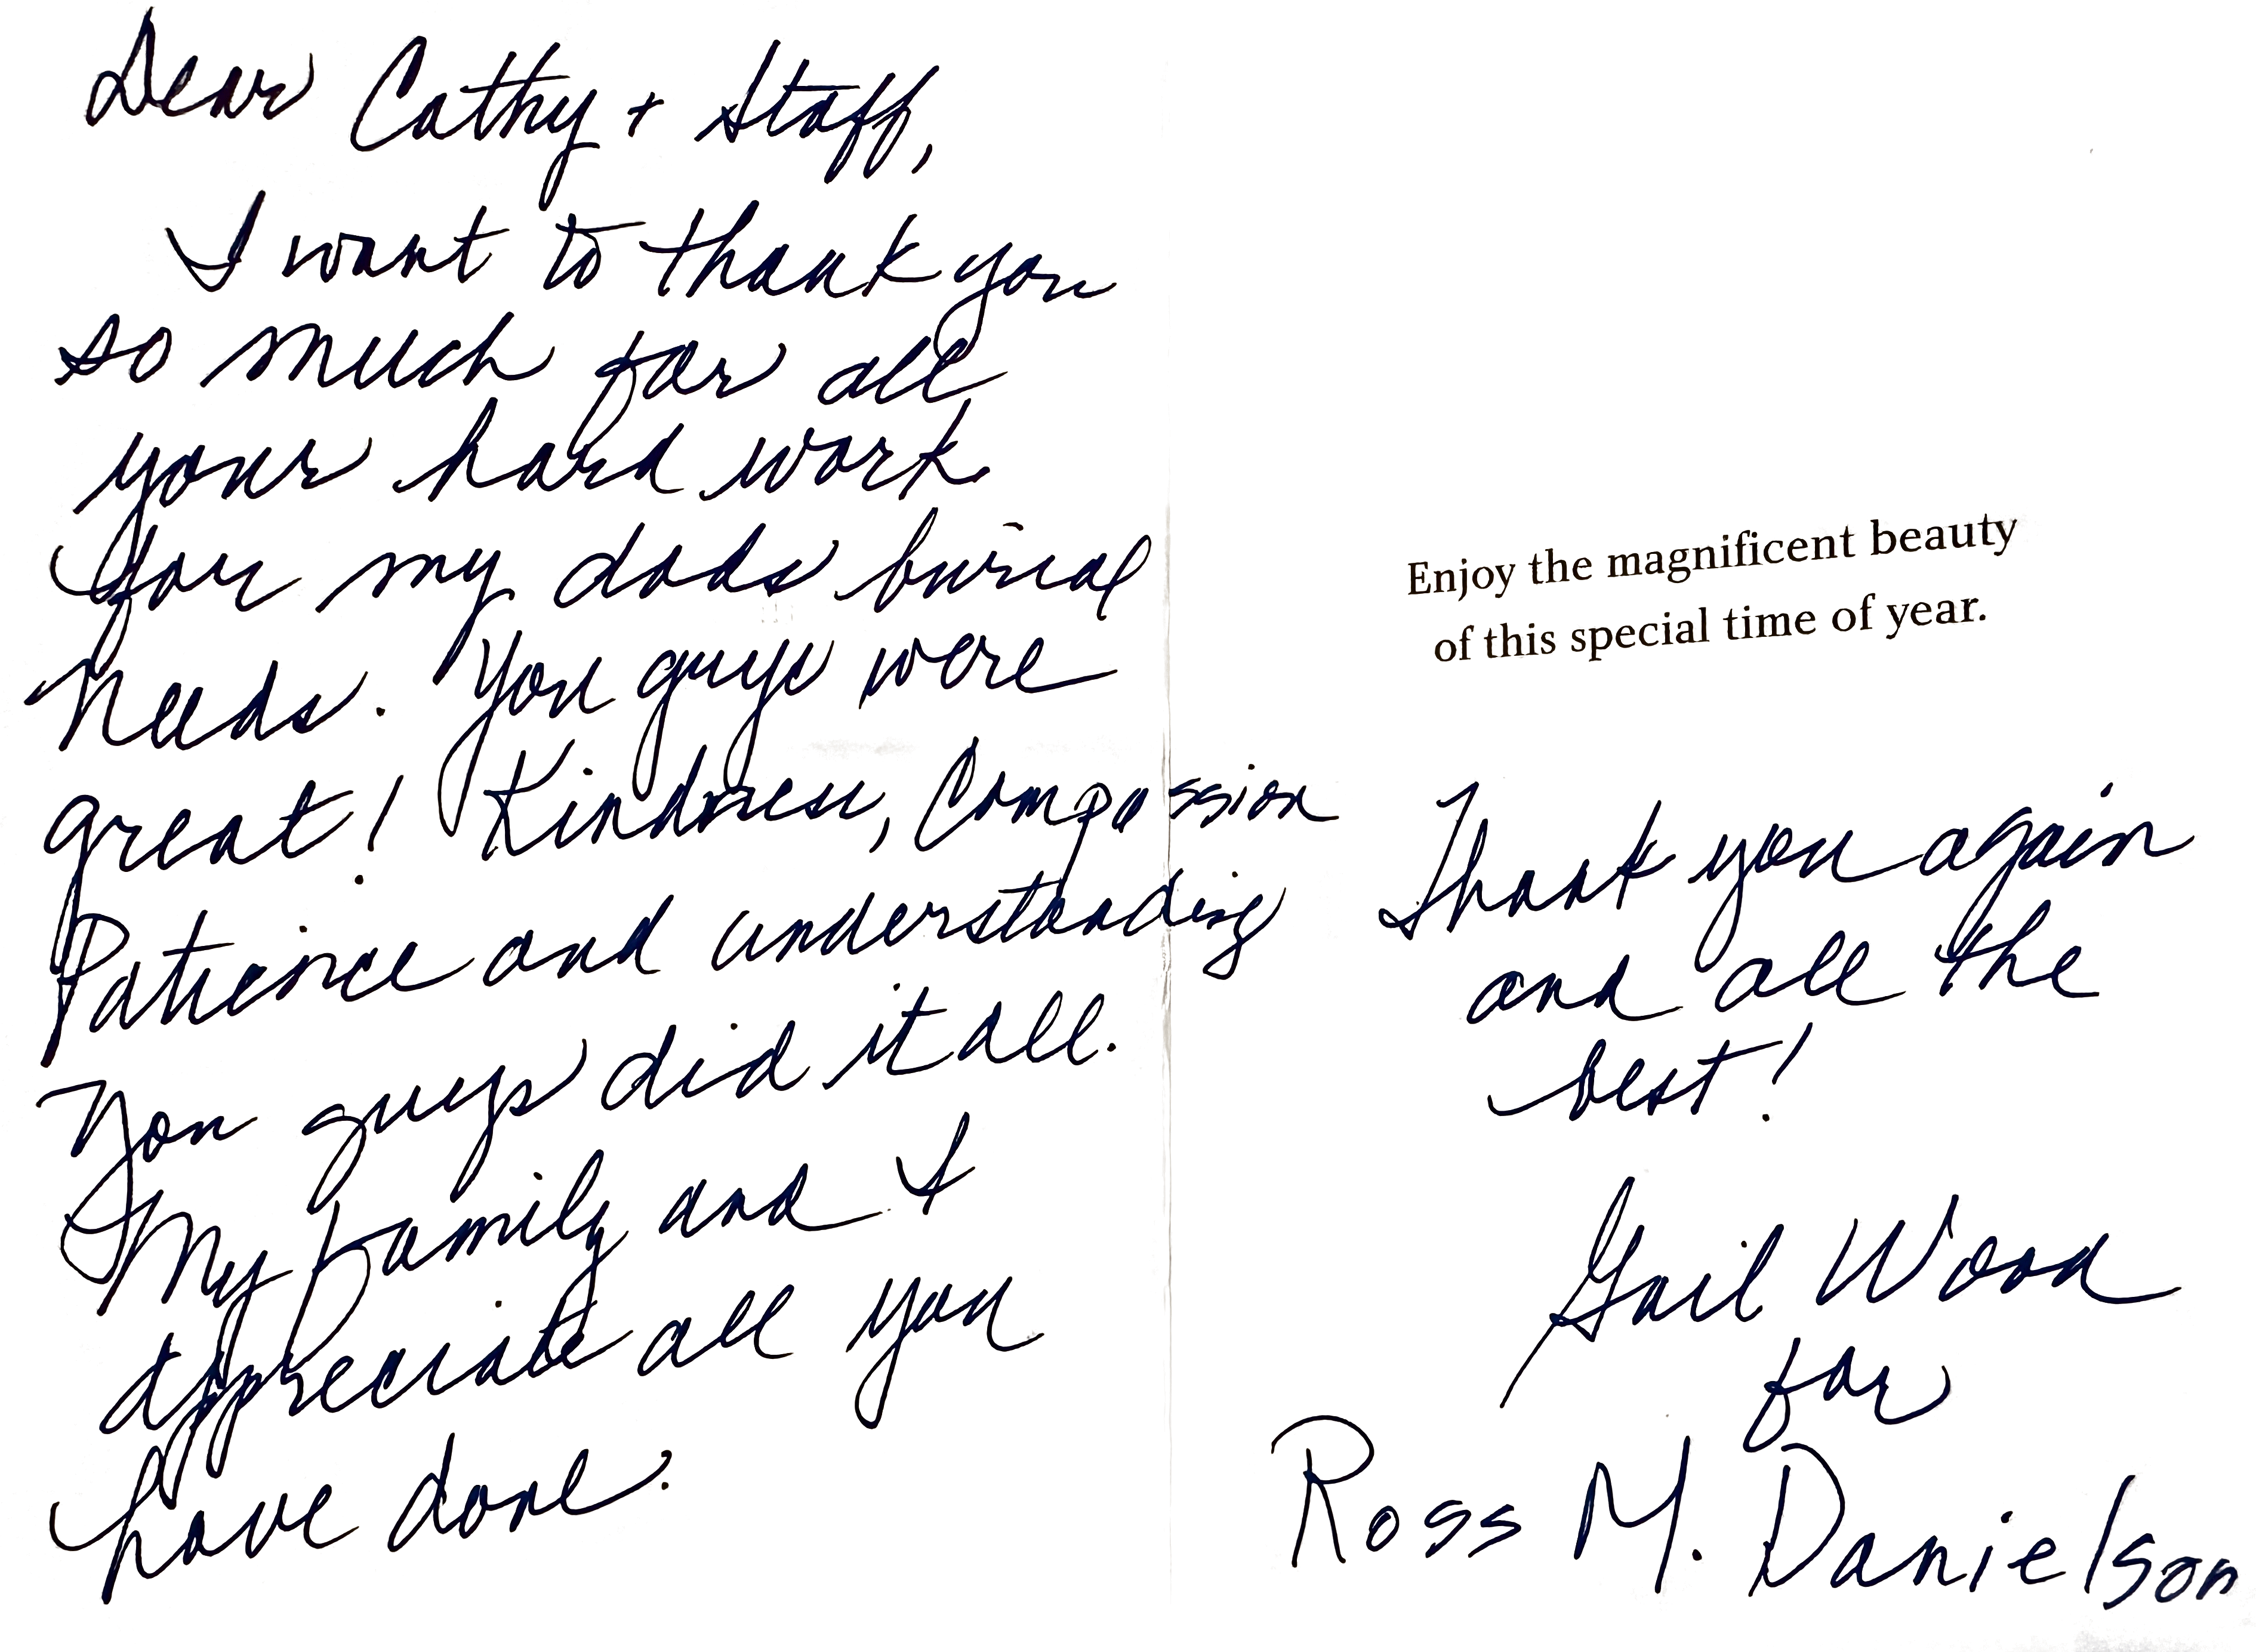 Dear Cathy + Staff,
I want to thank you
so much for all
your hard work
for my dads burial
needs. You guys were
great! Kindness, Compassion
Patience and understanding
You guys did it all.
My family and I
appreciate all you
have done.
Enjoy the magnificent beauty
of this special time of year.
Thank you again
and all the
best!
Gail Wood
for
Ross M. Danielson